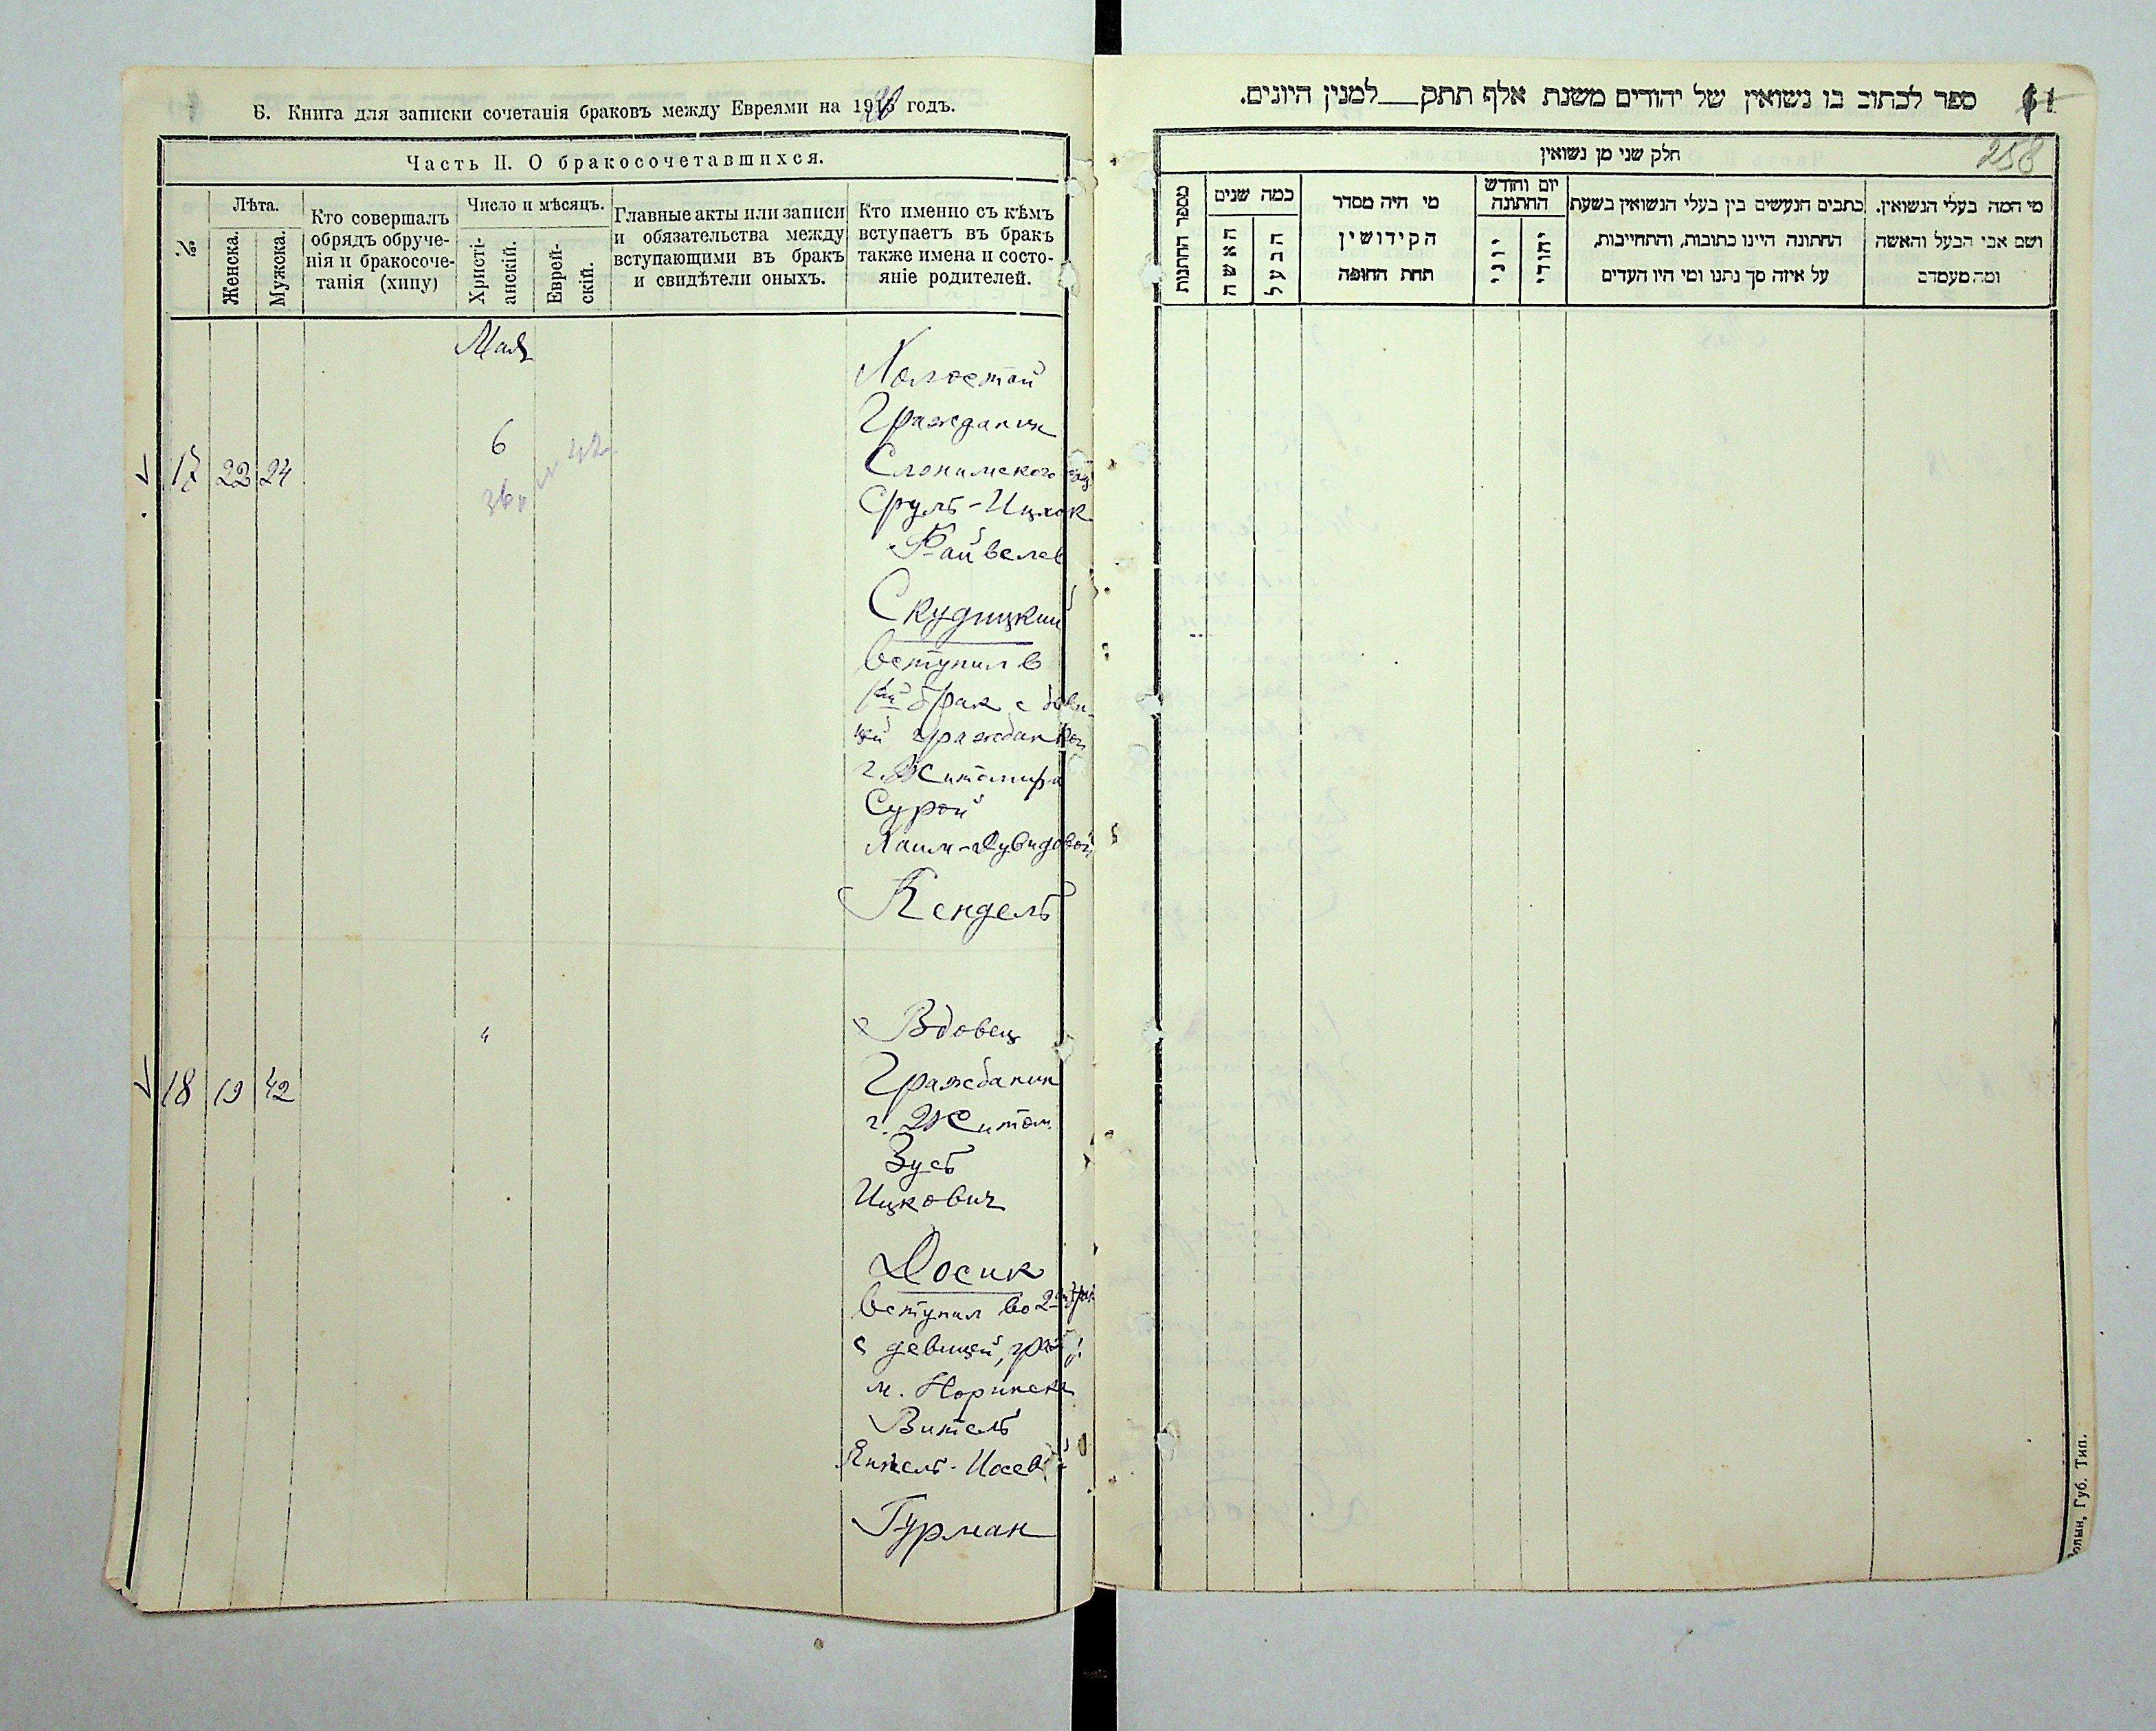 Б. Книга для записки сочетанія браковъ между Евреями на 1920 годъ.
Часть II. О бракосочетавшихся.
№
Лѣта.
Женска.
Мужска.
Кто совершалъ
обрядъ обруче-
нія и бракосоче-
танія (хипу)
Число и мѣсяцъ.
Христі-
анскій.
Еврей-
скій.
Главные акты или записи
и обязательства между
вступающими въ бракъ
и свидѣтели оныхъ.
Кто именно съ кѣмъ
вступаетъ въ бракъ
также имена и состо-
яніе родителей.
Мая
17 22 24
6
Холостой
Гражданин
Слонимского
Сруль-Ицхок
Файвелев
Скудицкий
вступил в
1ый брак с деви-
цей гражданкой
г. Житомира
Сурой
Хаим-Дувидовой
Кендель
18 19 42
"
Вдовец
Гражданин
г. Житом.
Зусь
Ицкович
Досик
вступил во 2ой брак
с девицей, граж.
м. Норинска
Витель
Янкель-Иосев
Гурман
ספר לכתוב בו נשואין של יהודים משנת אלף תתק___למנין היונים.
258
חלק שני מן נשואין
מספר החתנות
כמה שנים
האשה
הבעל
מי היה מסדר
הקידושין
תחת החופה
יום וחודש
החתונה
יוני
יהודי
כתבים הנעשים בין בעלי הנשואין בשעת
החתונה היינו כתובות, והתחייבות,
על איזה סך נתנו ומי היו העדים
מי המה בעלי הנשואין.
ושם אבי הבעל והאשה
ומה מעמדם
Волын, Губ. Тип.